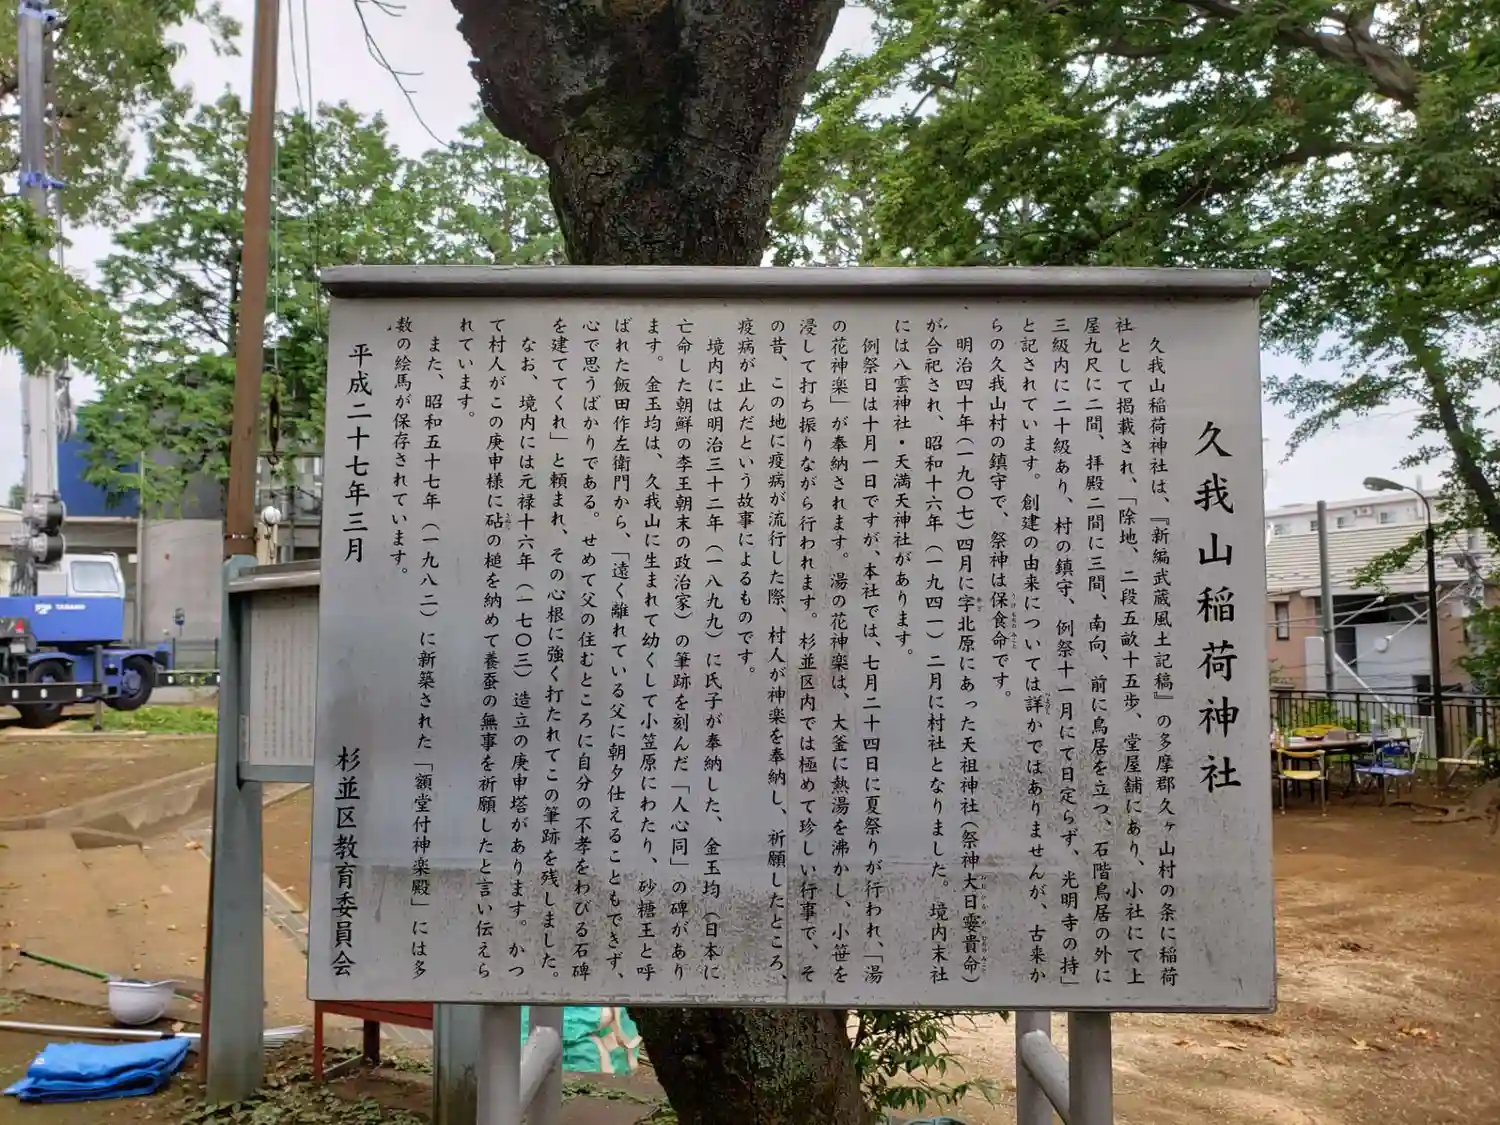 久我山稲荷神社
久我山稲荷神社は、『新編武蔵風土記稿』の多摩郡久ヶ山村の条に稲荷
社として掲載され、「除地、二段五畝十五歩、堂屋舗にあり、小社にて上
屋九尺に二間、拝殿二間に三間、南向、前に鳥居を立つ、石階鳥居の外に
三級内に二十級あり、村の鎮守、例祭十一月にて日定らず、光明寺の持」
と記されています。創建の由来については詳かではありませんが、古来か
らの久我山村の鎮守で、祭神は保食命です。
明治四十年(一九〇七)四月に字北原にあった天祖神社(祭神大日孁貴命)
が合祀され、昭和十六年(一九四一)二月に村社となりました。境内末社
には八雲神社・天満天神社があります。
例祭日は十月一日ですが、本社では、七月二十四日に夏祭りが行われ、「湯
の花神楽」が奉納されます。湯の花神楽は、大釜に熱湯を沸かし、小笹を
浸して打ち振りながら行われます。杉並区内では極めて珍しい行事で、そ
の昔、この地に疫病が流行した際、村人が神楽を奉納し、祈願したところ、
疫病が止んだという故事によるものです。
境内には明治三十二年(一八九九)に氏子が奉納した、金玉均(日本に
亡命した朝鮮の李王朝末の政治家)の筆跡を刻んだ「人心同」の碑があり
ます。金玉均は、久我山に生まれて幼くして小笠原にわたり、砂糖王と呼
ばれた飯田作左衛門から、「遠く離れている父に朝夕仕えることもできず、
心で思うばかりである。せめて父の住むところに自分の不孝をわびる石碑
を建ててくれ」と頼まれ、その心根に強く打たれてこの筆跡を残しました。
なお、境内には元禄十六年(一七〇三)造立の庚申塔があります。かつ
て村人がこの庚申様に砧の槌を納めて養蚕の無事を祈願したと言い伝えら
れています。
また、昭和五十七年(一九八二)に新築された「額堂付神楽殿」には多
数の絵馬が保存されています。
平成二十七年三月
杉並区教育委員会
TADANO